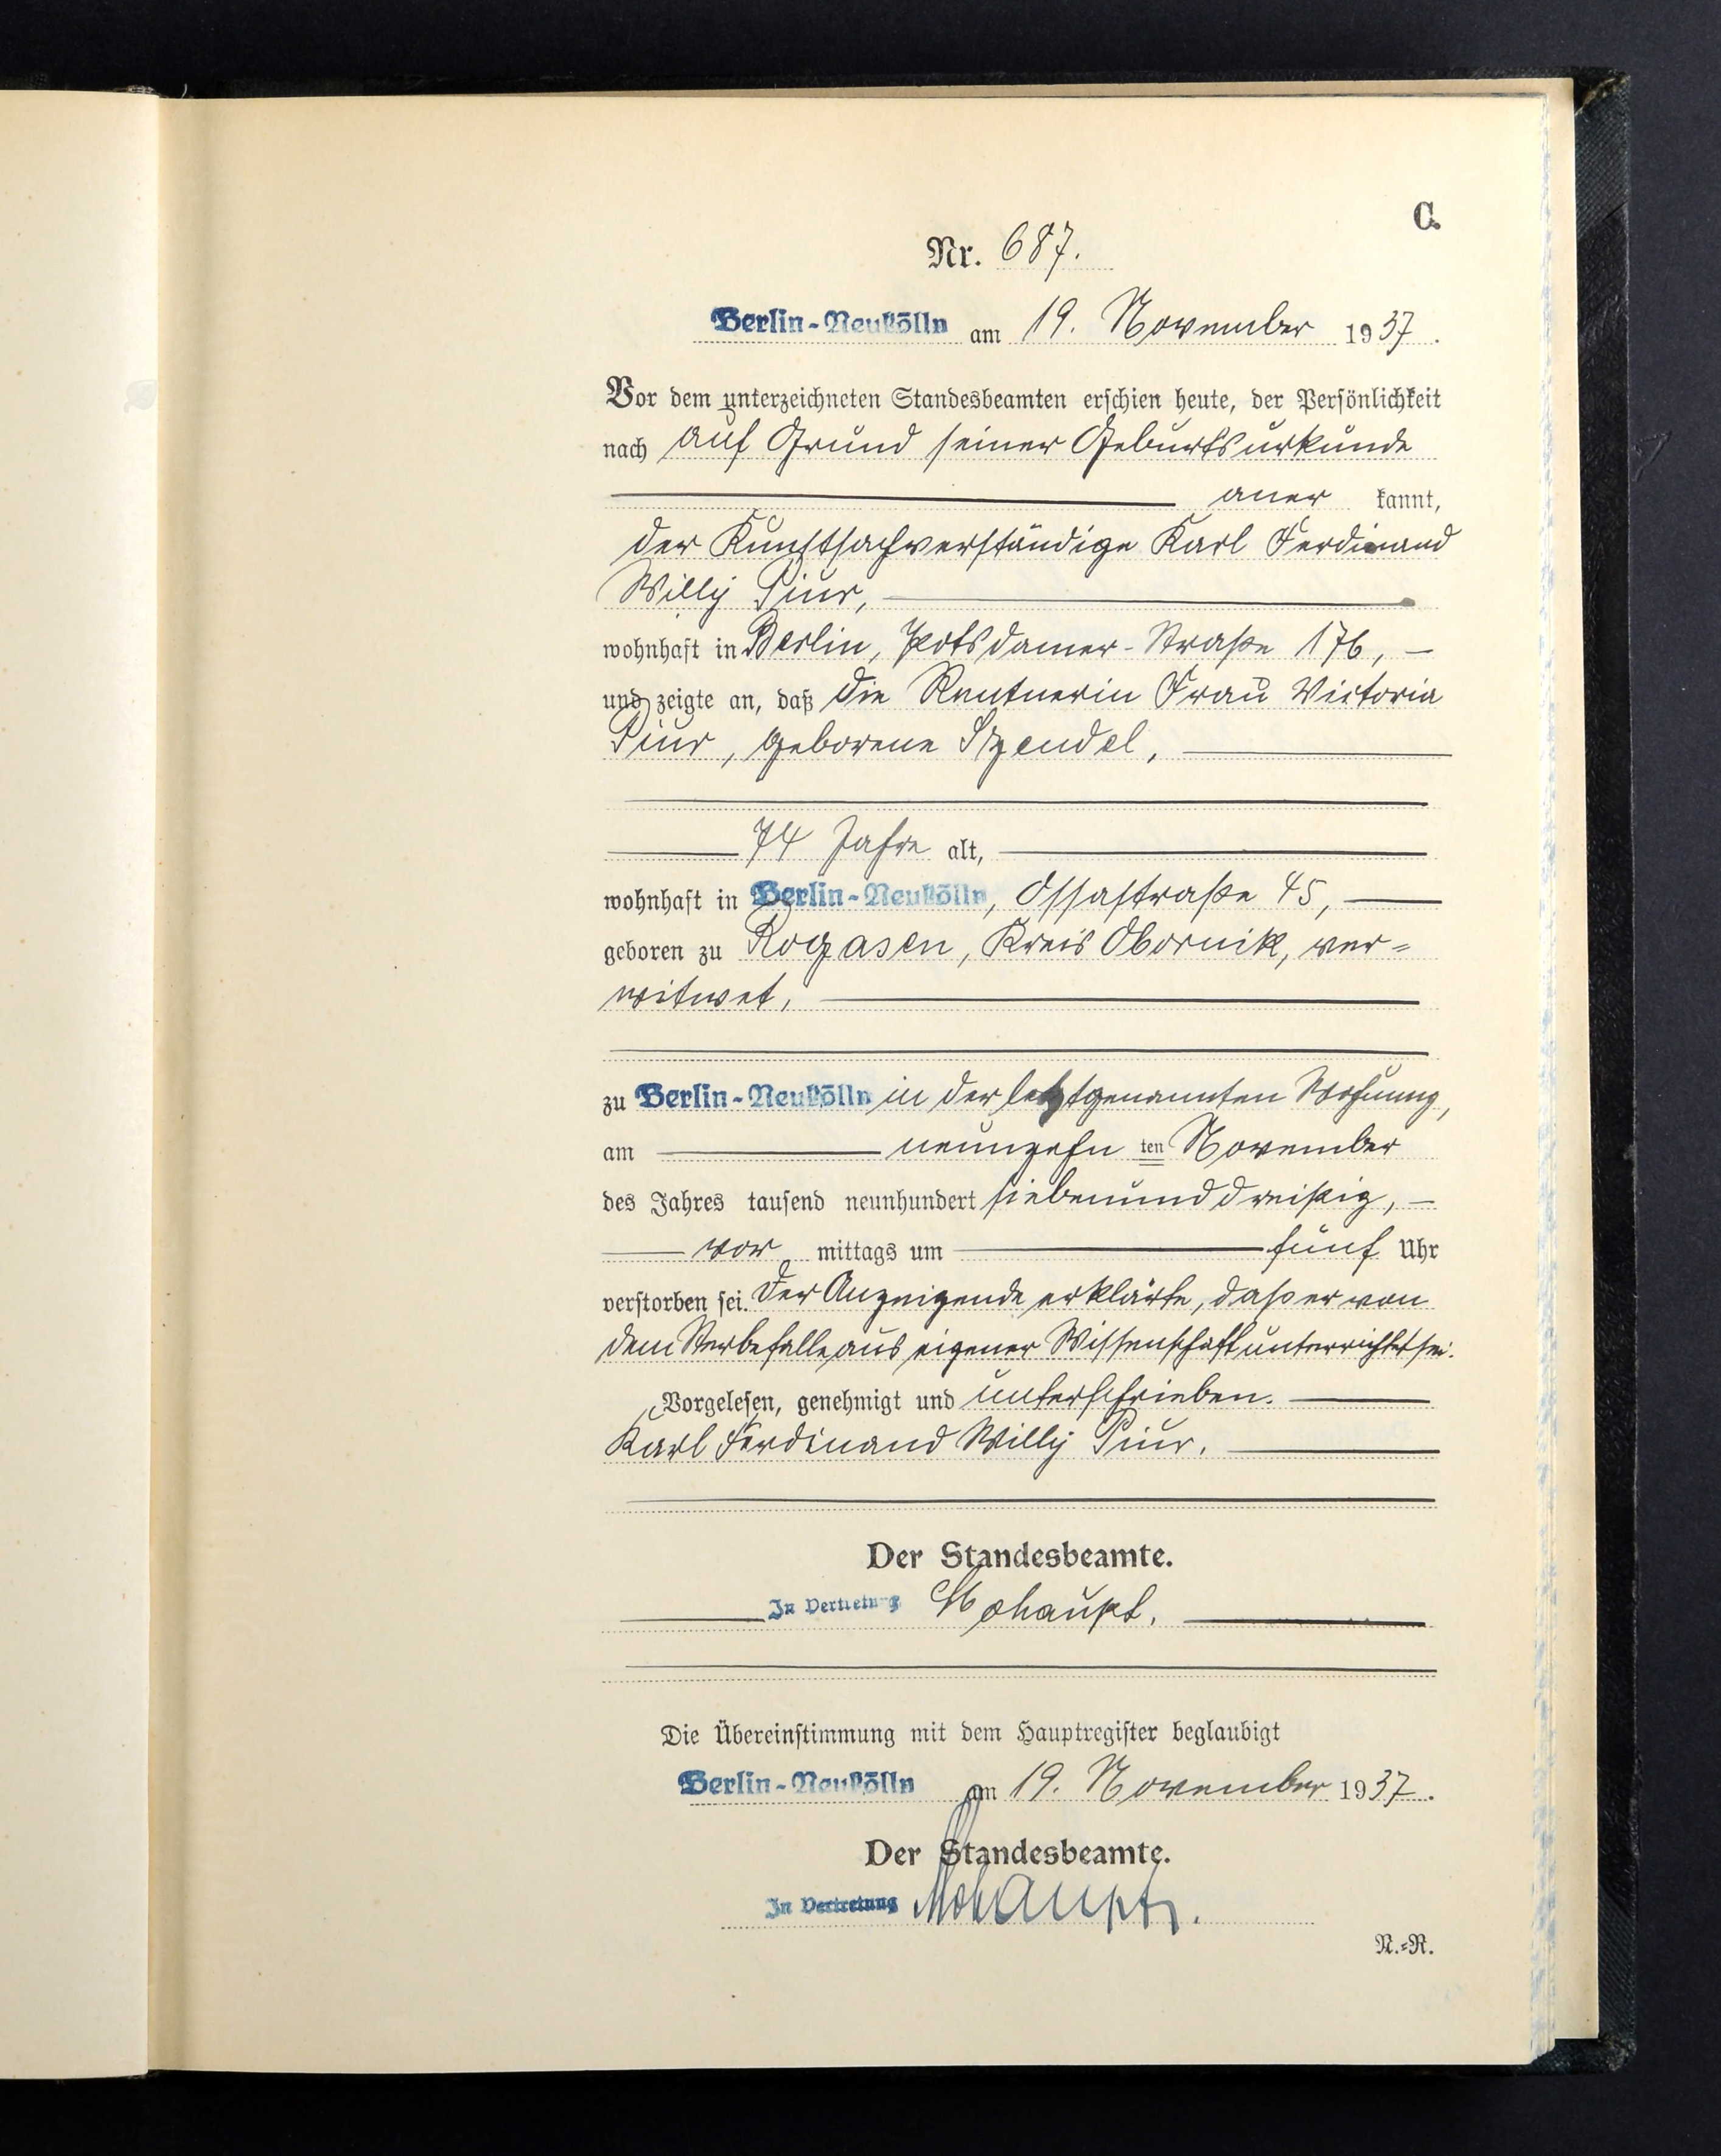 C.
Nr. 687.
Berlin-Neukölln am 19. November 1937.
Vor dem unterzeichneten Standesbeamten erschien heute, der Persönlichkeit
nach auf Grund seiner Geburtsurkunde
aner kannt,
der Kunstsachverständige Karl Ferdinand
Willy Piur,
wohnhaft in Berlin, Potsdamer-Straße 176,
und zeigte an, daß die Rentnerin Frau Victoria
Piur, geborene Szendel,
74 Jahre alt,
wohnhaft in Berlin-Neukölln, Ossastraße 45,
geboren zu Rogasen, Kreis Obornik, ver=
witwet,
zu Berlin-Neukölln in der letztgenannten Wohnung,
am neunzehn ten November
des Jahres tausend neunhundert siebenunddreißig,
vor mittags um fünf Uhr
verstorben sei. Der Anzeigende erklärte, daß er von
dem Sterbefalle aus eigener Wissenschaft unterrichtet sei.
Vorgelesen, genehmigt und unterschrieben.
Karl Ferdinand Willy Piur.
Der Standesbeamte.
In Vertretung Mohaupt.
Die Übereinstimmung mit dem Hauptregister beglaubigt
Berlin-Neukölln am 19. November 1937.
Der Standesbeamte.
In Vertretung Mohaupt.
N.=R.